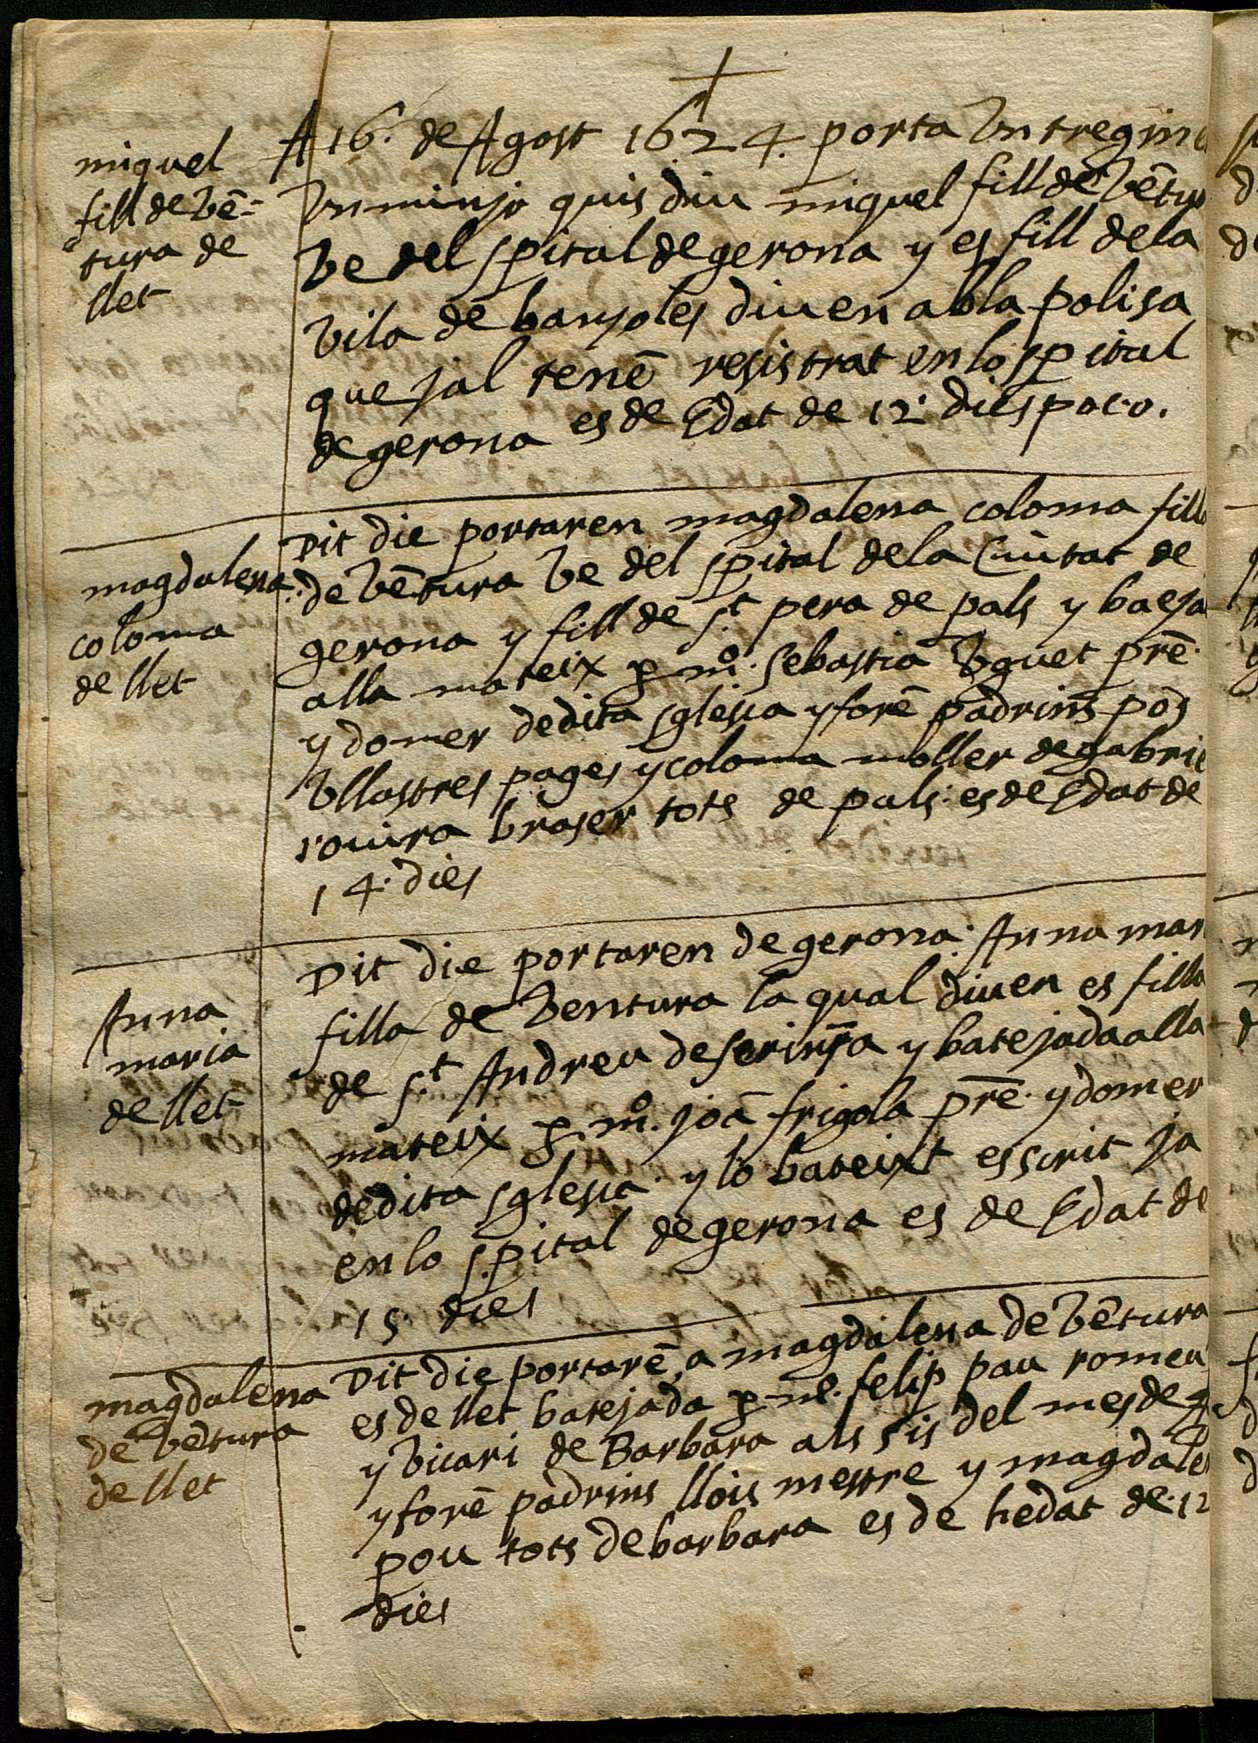 miquel
fill de vē-
tura de
llet
A 16. de Agost 1624. porta un tregine
un minyo quis diu miquel fill de vētu
ve del spital de gerona y es fill de la
vila de banyoles diuen ab la polisa
que jal tenē resistrat en lo spital
de gerona es de Edat de 12. dies poc.
magdalena
coloma
de llet
Dit die portaren magdalena coloma fill
de vētura ve del spital de la Ciutat de
gerona y fill de s.t pera de pals y bateja
alla mateix p mº. sebastia uguet prē.
y domer de dita sglesia y forē padrins
ullastres pages y coloma moller de gabrie
rouira braser tots de pals. es de Edat de
14. dies
Anna
maria
de llet
Dit die portaren de gerona. Anna mar
filla de ventura la qual diuen es filla
de s.t Andreu de serinya y batejada alla
mateix p mº. joā frigola prē. y domer
de dita sglesia y lo bateixt es scrit ja
en lo spital de gerona es de Edat de
15 dies
magdalena
de vētura
de llet
Dit die portarē a magdalena de vētura
es de llet batejada p mº. felip pau romeu
y vicari de Barbara als sis del mes de
y forē padrins llois mestre y magdale
pou tots de barbara es de hedat de 12
dies